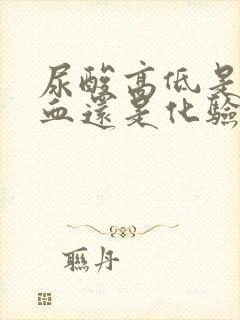 尿酸高低是
血還是化驗
聯丹